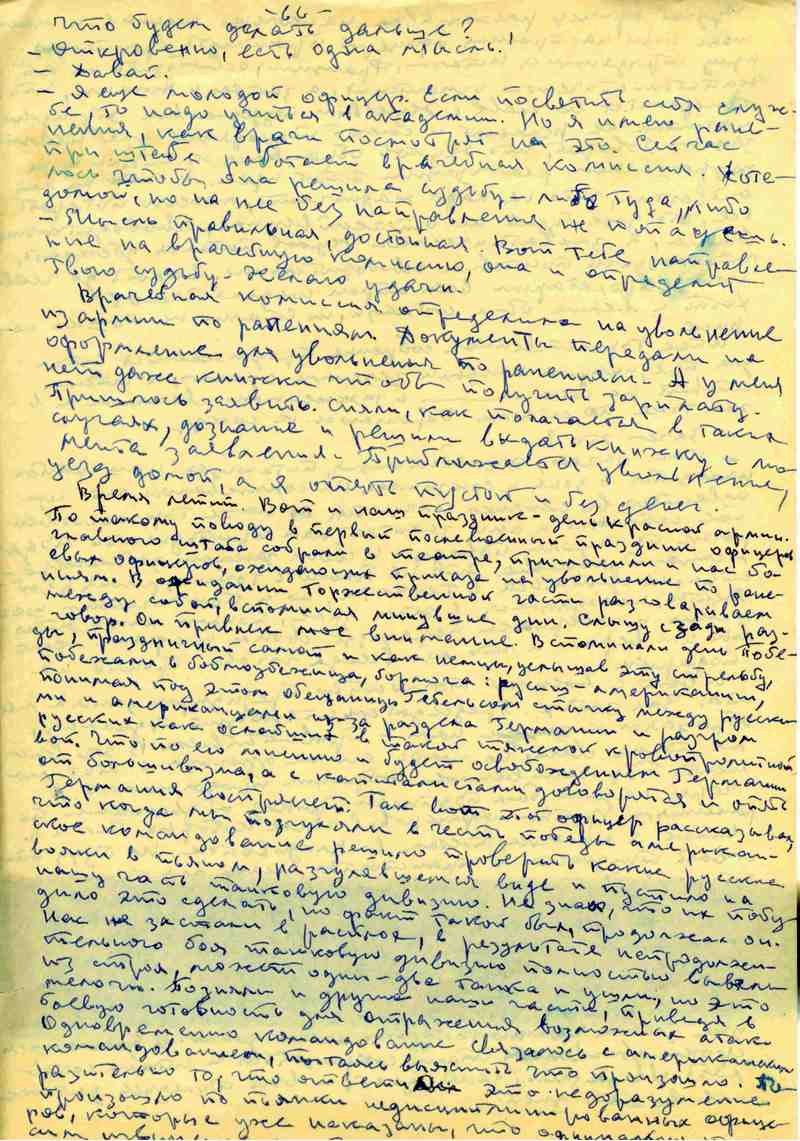 -66-
что будем делать дальше?
- Откровенно, есть одна мысль!
- Давай.
- Я еще молодой офицер. Если посвятить себя служ-
бе, то надо учиться в академии. Но я имею ране-
ния, как врачи посмотрят на это. Сейчас
при штабе работает врачебная комиссия. Хоте-
лось чтобы она решила судьбу - либо туда, либо
домой, но на нее без направления не
- Мысль правильная, достойная. Вот тебе направле-
ние на врачебную комиссию, она и определит
твою судьбу - желаю удачи!
Врачебная комиссия определила на увольнение
из армии по ранениям. Документы передали на
оформление для увольнения по ранениям. А у меня
нет даже книжки чтобы получить зарплату.
Пришлось заявить. Сняли, как полагается в таких
случаях, дознание и решили выдать книжку с мо-
мента заявления. Приближается увольнение,
уезд домой, а я опять пустой и без денег.
Время летит. Вот и наш праздник - день Красной армии.
По такому поводу в первый послевоенный праздник офицеров
главного штаба собрали в театре, пригласили и нас бо-
евых офицеров, ожидающих приказа на увольнение по ране-
ниям. В ожидании торжественной части разговариваем
между собой, вспоминая минувшие дни. Слышу сзади раз-
говор. Он привлек мое внимание. Вспоминали день Побе-
ды, праздничный салют и как немцы, услышав эту стрельбу,
побежали в бомбоубежища, бормоча: русиш - американиш,
понимая под этим обещанную Гебельсом стычку между русски-
ми и американцами из-за раздела Германии и разгром
русских как ослабших в такой тяжелой кровопролитной
вой. Что по его мнению и будет освобождением Германии
от большевизма, а с капиталистами договорятся и опять
Германия воспрянет. Так вот этот офицер рассказывал,
что когда мы погуляли в честь победы американ-
ское командование решило проверить какие русские
вояки в пьяном, разгулявшемся виде и пустило на
нашу часть танковую дивизию. Не знаю, что их побу-
дило это сделать, но факт такой был, продолжал он.
Нас не застали в расплох, в результате непродолжи-
тельного боя танковую дивизию полностью вывели
из строя, может один-два танка и ушли, но это
мелочи. Подняли и другие наши части, приведя в
боевую готовность для отражения возможных атак.
Одновременно командование связалось с американским
командованием, пытаясь выяснить что произошло.
разительно то, что ответили это недоразумение
произошло по пьянке недисциплинированных офице-
ров, которые уже наказаны, что